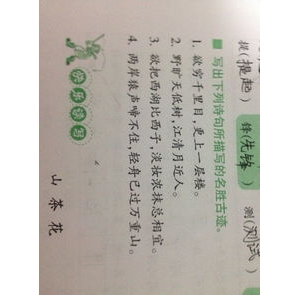 提(提起)
锋(先锋)
测(测试)
■ 写出下列诗句所描写的名胜古迹。
1. 欲穷千里目,更上一层楼。
2. 野旷天低树,江清月近人。
3. 欲把西湖比西子,淡妆浓抹总相宜。
4. 两岸猿声啼不住,轻舟已过万重山。
快乐读写
山茶花